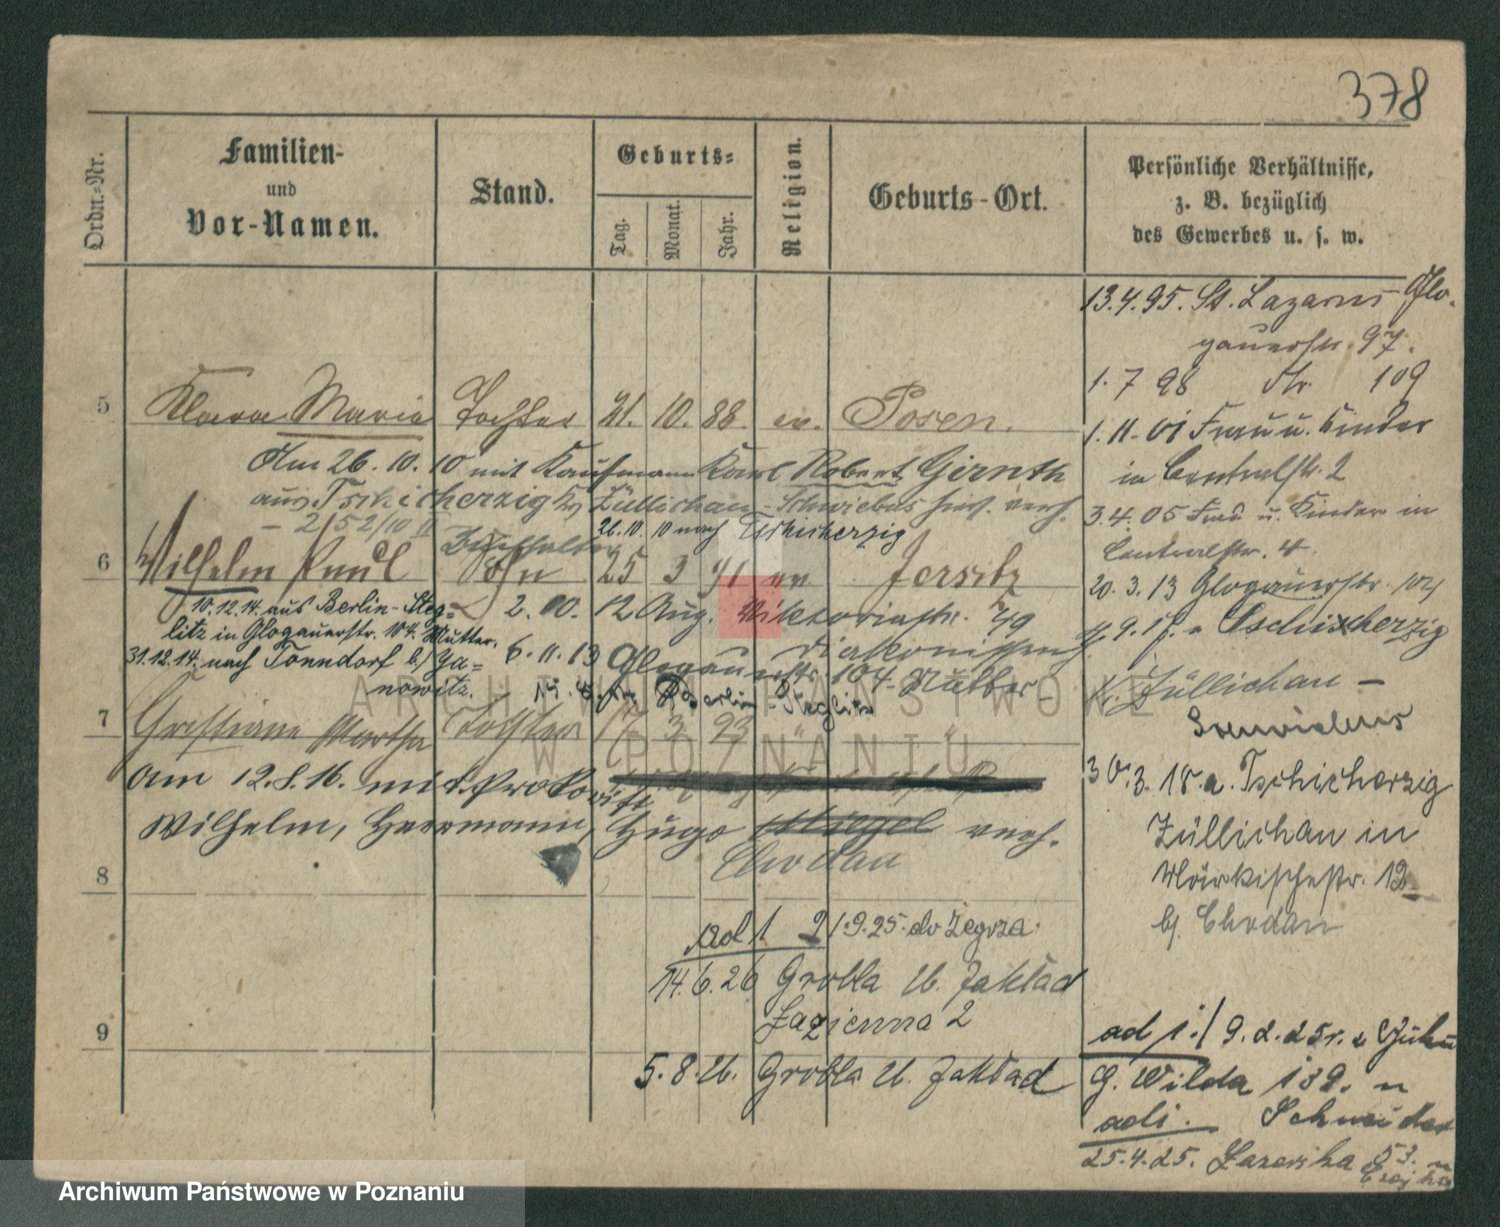 378
Ordn.-Nr.
Familien-
und
Vor-Namen.
Stand.
Geburts-
Tag.
Monat.
Jahr.
Religion.
Geburts-Ort.
Persönliche Verhältnisse,
z. B. bezüglich
des Gewerbes u. s. w.
13.4.95. St. Lazarus Glo-
gauerstr. 97.
1.7 98 Str. 109
5 Klara Maria Tochter 21. 10. 88. ev. Posen.
1.11.01 Frau u. Kinder
in Centralstr. 2
Am 26.10.10 mit Kaufmann Karl Robert Girnth
aus Tschicherzig Kr Züllichau-Schwiebus hies. verh.
- 2/52/10 II
26.10.10 nach Tschicherzig
3.4.05 Frau u. Kinder in
Centralstr. 4.
Buchhalter
6 Wilhelm Paul Sohn 25 3 91 ev Jersitz
20.3.13 Glogauerstr. 104
10.12.14. aus Berlin-Steg-
litz in Glogauerstr. 104. Mutter.
31.12.14. nach Tonndorf b/
nowitz.
2. 12 Aug. Viktoriastr.
6.11.13 Glogauerstr. 104 Mutter
Berlin-Steglitz
Tschicherzig
Kr. Züllichau -
Schwiebus
7 Christiane Martha Tochter 17 3 93 " "
Am 12.8.16. mit Prokorist
Wilhelm, Herrmann, Hugo verh.
Chodan
30.3.18. a. Tschicherzig
Züllichau in
Märkischestr. 12
b/ Chodan
8
ad 1 21.9.25. do Zegrza.
14.6.26 Grobla U. Zakład
Łazienna 2
9
5.8.26. Grobla U. Zakład
ad 1./ 9.2.25 r.
G. Wilda 139. u
ad 1. Schneider
25.4.25. Łazarska 53.
ARCHIWUM PAŃSTWOWE
W POZNANIU
Archiwum Państwowe w Poznaniu